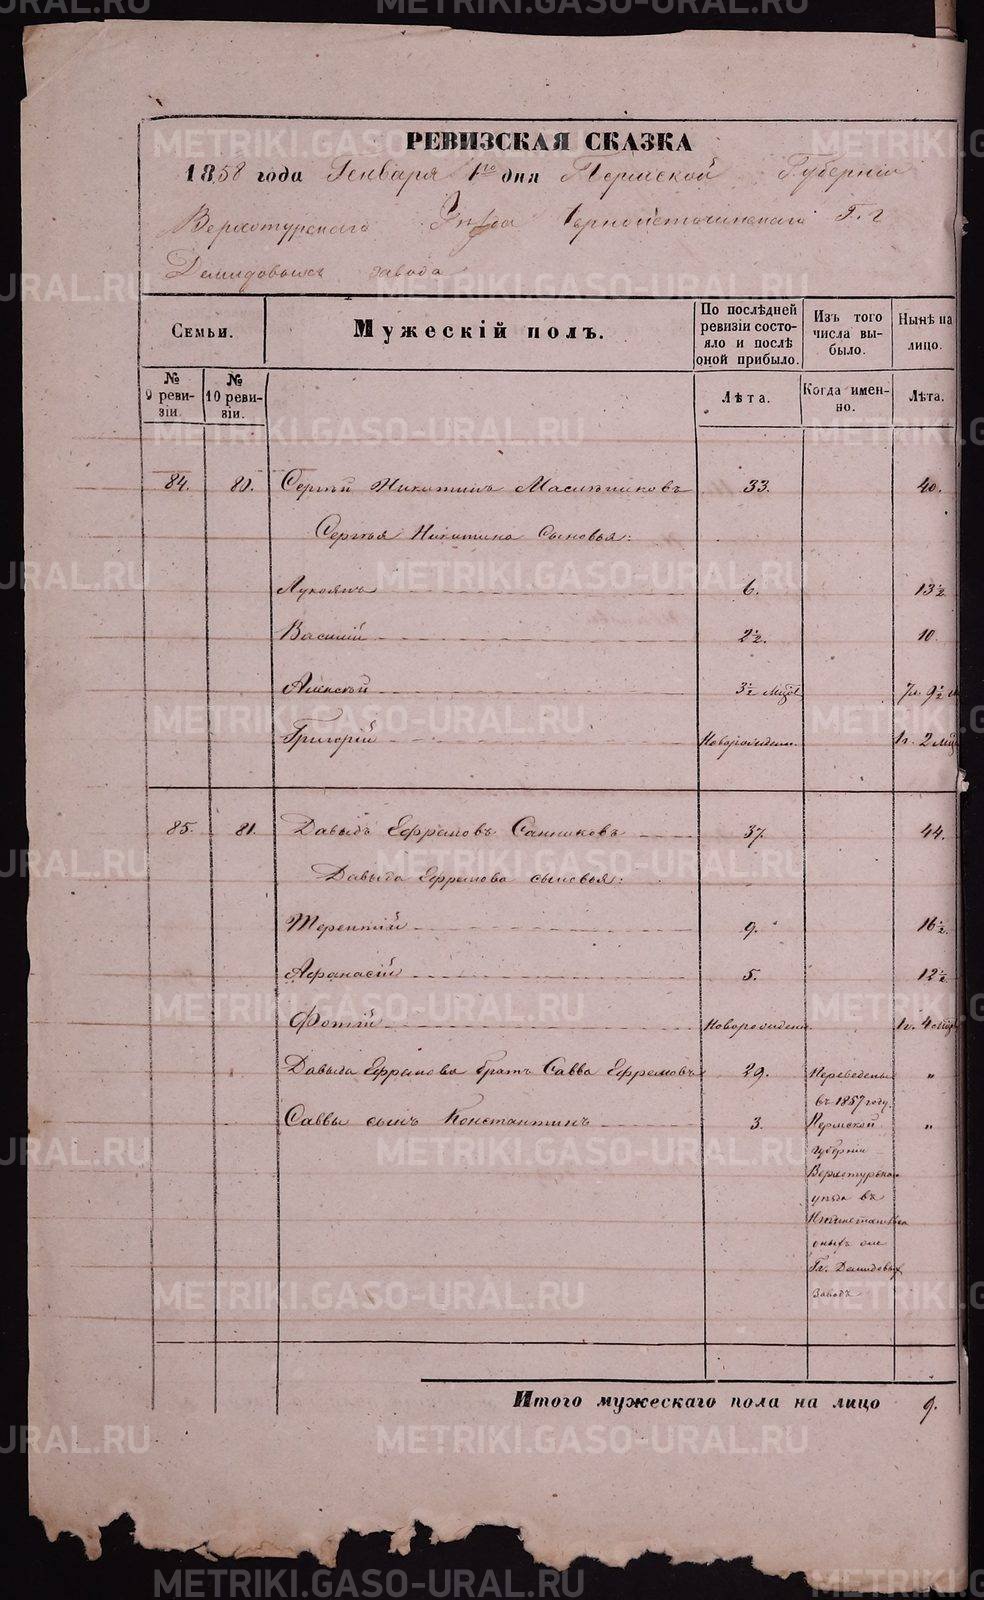 РЕВИЗСКАЯ СКАЗКА
1858 года Генваря 1го дня Пермской Губерніи
Верхотурскаго Уѣзда Черноисточинскаго Г. г
Демидовыхъ завода
Семьи.
Мужескій полъ.
По послѣдней ревизіи состояло и послѣ оной прибыло.
Изъ того числа выбыло.
Нынѣ на лицо.
№ 9 ревизіи.
№ 10 ревизіи.
Лѣта.
Когда именно.
Лѣта.
84. 80. Сергѣй Никитинъ Масленниковъ 33. 40.
Сергѣя Никитина сыновья:
Лукоянъ 6. 13½
Василій 2½. 10
Алексѣй 3½ мѣс 7л. 9½ м
Григорій Новорожден. 1г. 2 мѣс
85. 81. Давыдъ Ефремовъ Санниковъ 37. 44.
Давыда Ефремова сыновья:
Терентій 9. 16½.
Афанасій 5. 12½
Фотій Новорожден. 1г. 4 мѣс
Давыда Ефремова братъ Савва Ефремовъ 29. Переведены "
въ 1857 году.
Саввы сынъ Константинъ 3. Пермской "
Губерніи
Верхотурска
уѣзда въ
Гг. Демидовых
Заводъ
Итого мужескаго пола на лицо 9.
METRIKI.GASO-URAL.RU